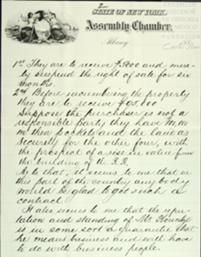 STATE OF NEW YORK.
Assembly Chamber,
Albany 188
1st They are to receive $ 500 and mere-
ly suspend the right of sale for six
months.
2nd Before encumbering the property
they are to receive $
Suppose the purchaser is not a
responsible party, they have
in their pockets and the land as
security for the other four, with
the prospect of a rise in value from
the building of the R.R.
As to that, it seems to me that in
this part of the country any body
would be glad to get such a
contract.
It also seems to me that the repu-
tation and standing of Mr.
is in some sort a guarantee that
he means business and will have
to do with business people.